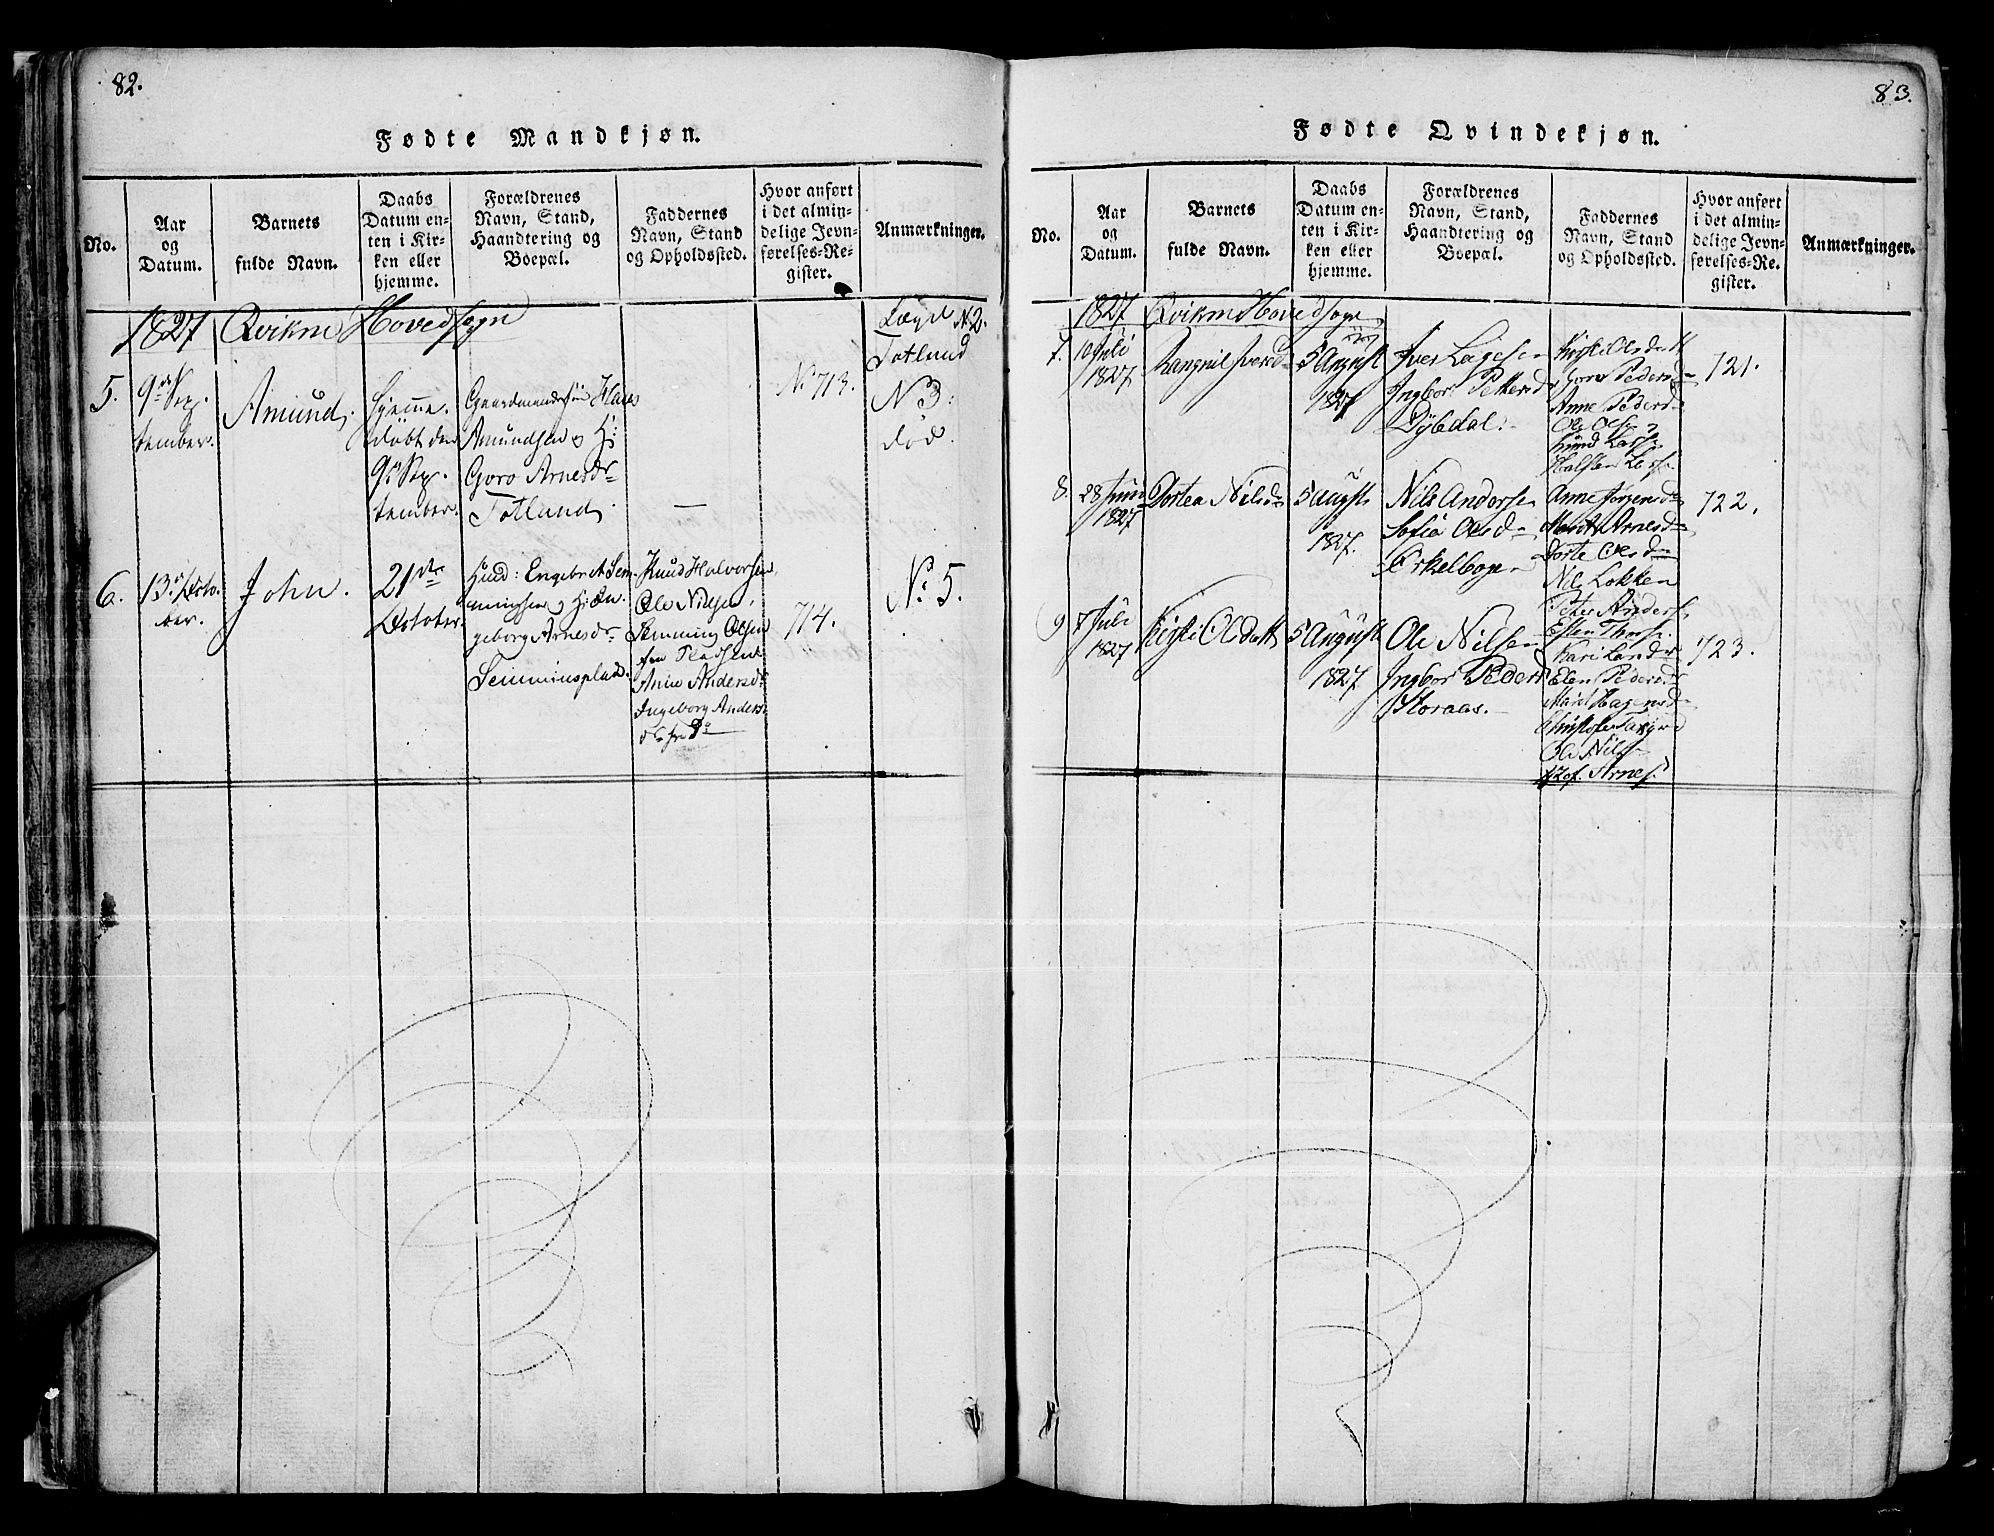 82.
Fødte Mandkjøn.
No.
Aar
og
Datum.
Barnets
fulde Navn.
Daabs
Datum en-
ten i Kir-
ken eller
hjemme.
Forældrenes
Navn, Stand,
Haandtering og
Boepæl.
Faddernes
Navn, Stand
og Opholdssted.
Hvor anført
i det almin-
delige Jevn-
førelses-Re-
gister.
Anmærkninger.
1827 Qvikne Hovedsogn
5.
9de Sep-
tember.
Amund.
Hjemme-
døbt den
9de Sep-
tember.
Gaardmandssøn Hans
Amundsen og H:
Goro Arnesdr
Totland.
—
No 713.
Lægd No 2.
Totland
No 3:
død.
6.
13de Octo-
ber.
John.
21de
October.
Huusm: Engebret Sem-
mingsen og H: In-
geborg Arnesdr
Semminsplads.
Knud Halvorsen,
Ole Nilsen,
Semming Olsen
Anne Andersdr
Ingeborg Anders-
dr fra Do
714.
No 5.
83.
Fødte Qvindekjøn.
No.
Aar
og
Datum.
Barnets
fulde Navn.
Daabs
Datum en-
ten i Kir-
ken eller
hjemme.
Forældrenes
Navn, Stand,
Haandtering og
Boepæl.
Faddernes
Navn, Stand
og Opholdssted.
Hvor anført
i det almin-
delige Jevn-
førelses-Re-
gister.
Anmærkninger.
1827 Qvikne Hovedsogn
7.
10 Juli
1827
Rangnil Iversd
5 August
1827
Iver Lagesen
Ingbor Pettersd
Dybdal.
Kirsti Olsdatt
Goro Pedersd
Anne Pedersd
Ole Olsen
Halsten Lars
721.
8.
28 Juni
1827
Dortea Nilsd
5 August
1827.
Nils Andersen
Sofia Olsd
Erkelbogen
Anne Jørgensd
Marit Arnesd
Dorte Olsd
Nils Løkken
Peter Anders
Esten Thors
722.
9
7 Juli
1827
Kirsti Olsdatt
5 August
1827
Ole Nilsen
Ingbor Peders
Storaas.
Kari Larsd
Elen Pedersd
Marit Hagensd
Ole Nils
Arnes.
723.